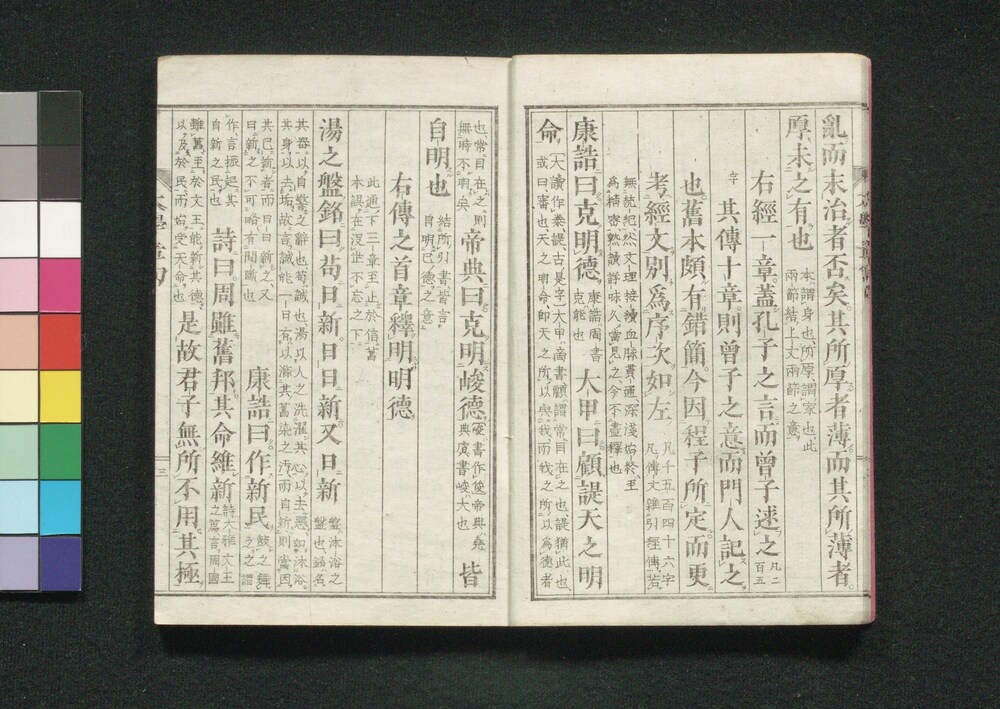 亂而末治者否矣其所厚者薄而其所薄者
厚未之有也本謂身也所厚謂家也此兩節結上文兩節之意
右經一章蓋孔子之言而曾子述之凡二百五
字其傳十章則曾子之意而門人記之
也舊本頗有錯簡今因程子所定而更
考經文別爲序次如左凡千五百四十六字凡傳文雜引經傳若
無統紀然文理接續血脈貫通深淺始終至爲精密熟讀詳味久當見之今不盡釋也
康誥曰克明德康誥周書克能也大甲曰顧諟天之明
命大讀作泰諟古是字大甲商書顧謂常目在之也諟猶此也或曰審也天之明命卽天之所以與我而我之所以爲德者
也常目在之則無時不明矣帝典曰克明峻德峻書作俊帝典堯典虞書峻大也皆
自明也結所引書皆言自明己德之意
右傳之首章釋明明德
此通下三章至止於信舊本誤在沒世不忘之下
湯之盤銘曰苟日新日日新又日新盤沐浴之盤也銘名
其器以自警之辭也苟誠也湯以人之洗濯其心以去惡如沐浴其身以去垢故言誠能一日有以滌其舊染之汚而自新則當因
其已新者而日日新之又日新之不可略有閒斷也康誥曰作新民鼓之舞之之謂
作言振起其自新之民也詩曰周雖舊邦其命維新詩大雅文王之篇言周國
雖舊至於文王能新其德以及於民而始受天命也是故君子無所不用其極
大學章句
三